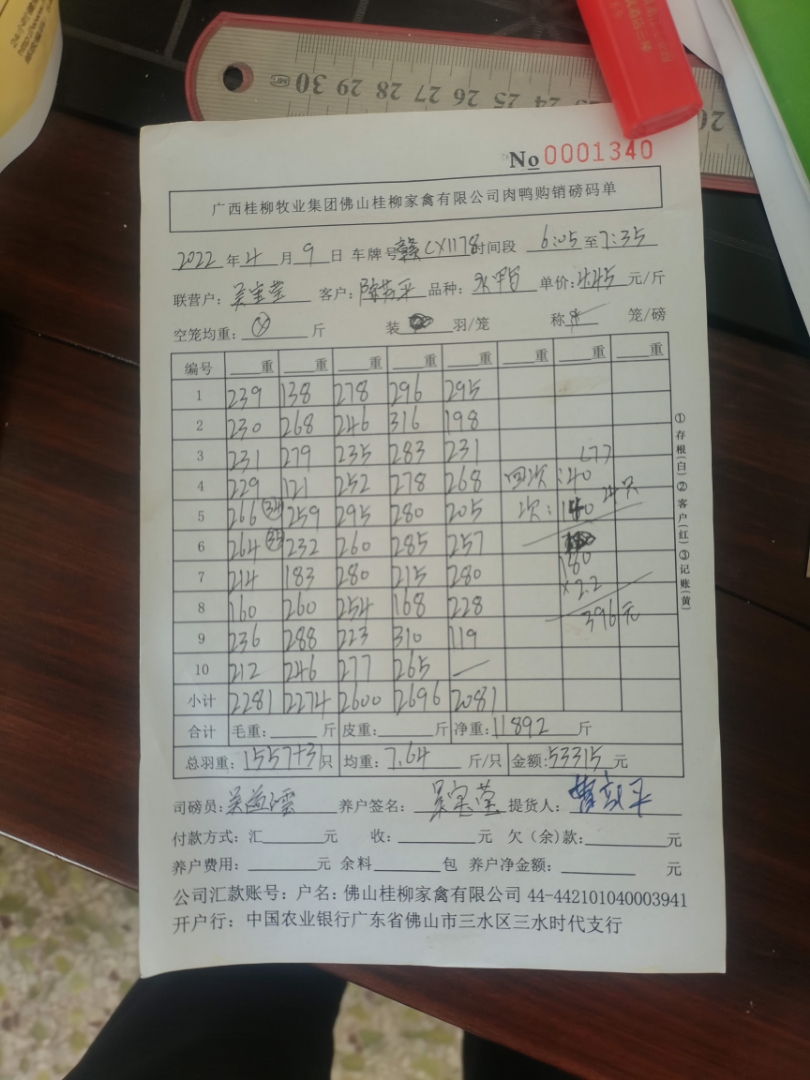 30 29 28 27 26 25 24
No 0001340
广西桂柳牧业集团佛山桂柳家禽有限公司肉鸭购销磅码单
2022年4月9日 车牌号赣CX1178时间段 6:05至7:35
联营户: 客户: 品种: 单价:4.45元/斤
空笼均重: 斤 装 羽/笼 称 笼/磅
编号 重 重 重 重 重 重 重 重
1 239 138 278 296 295
2 230 268 246 316 198
3 231 279 235 283 231
4 229 121 252 278 268 四次:40
5 266 259 295 280 205 次:140
6 264 232 260 285 257
7 214 183 280 215 280 180
8 160 260 254 168 228 ×2.2
9 236 288 223 310 119 396元
10 212 246 277 265 —
小计 2281 2274 2600 2696 2081
合计 毛重: 斤 皮重: 斤 净重:11892斤
总羽重:1557+31只 均重:7.64斤/只 金额:53315元
司磅员: 养户签名: 提货人:
付款方式:汇 元 收: 元 欠(余)款: 元
养户费用: 元 余料 包 养户净金额: 元
公司汇款账号:户名:佛山桂柳家禽有限公司 44-442101040003941
开户行:中国农业银行广东省佛山市三水区三水时代支行
①存根(白)②客户(红)③记账(黄)